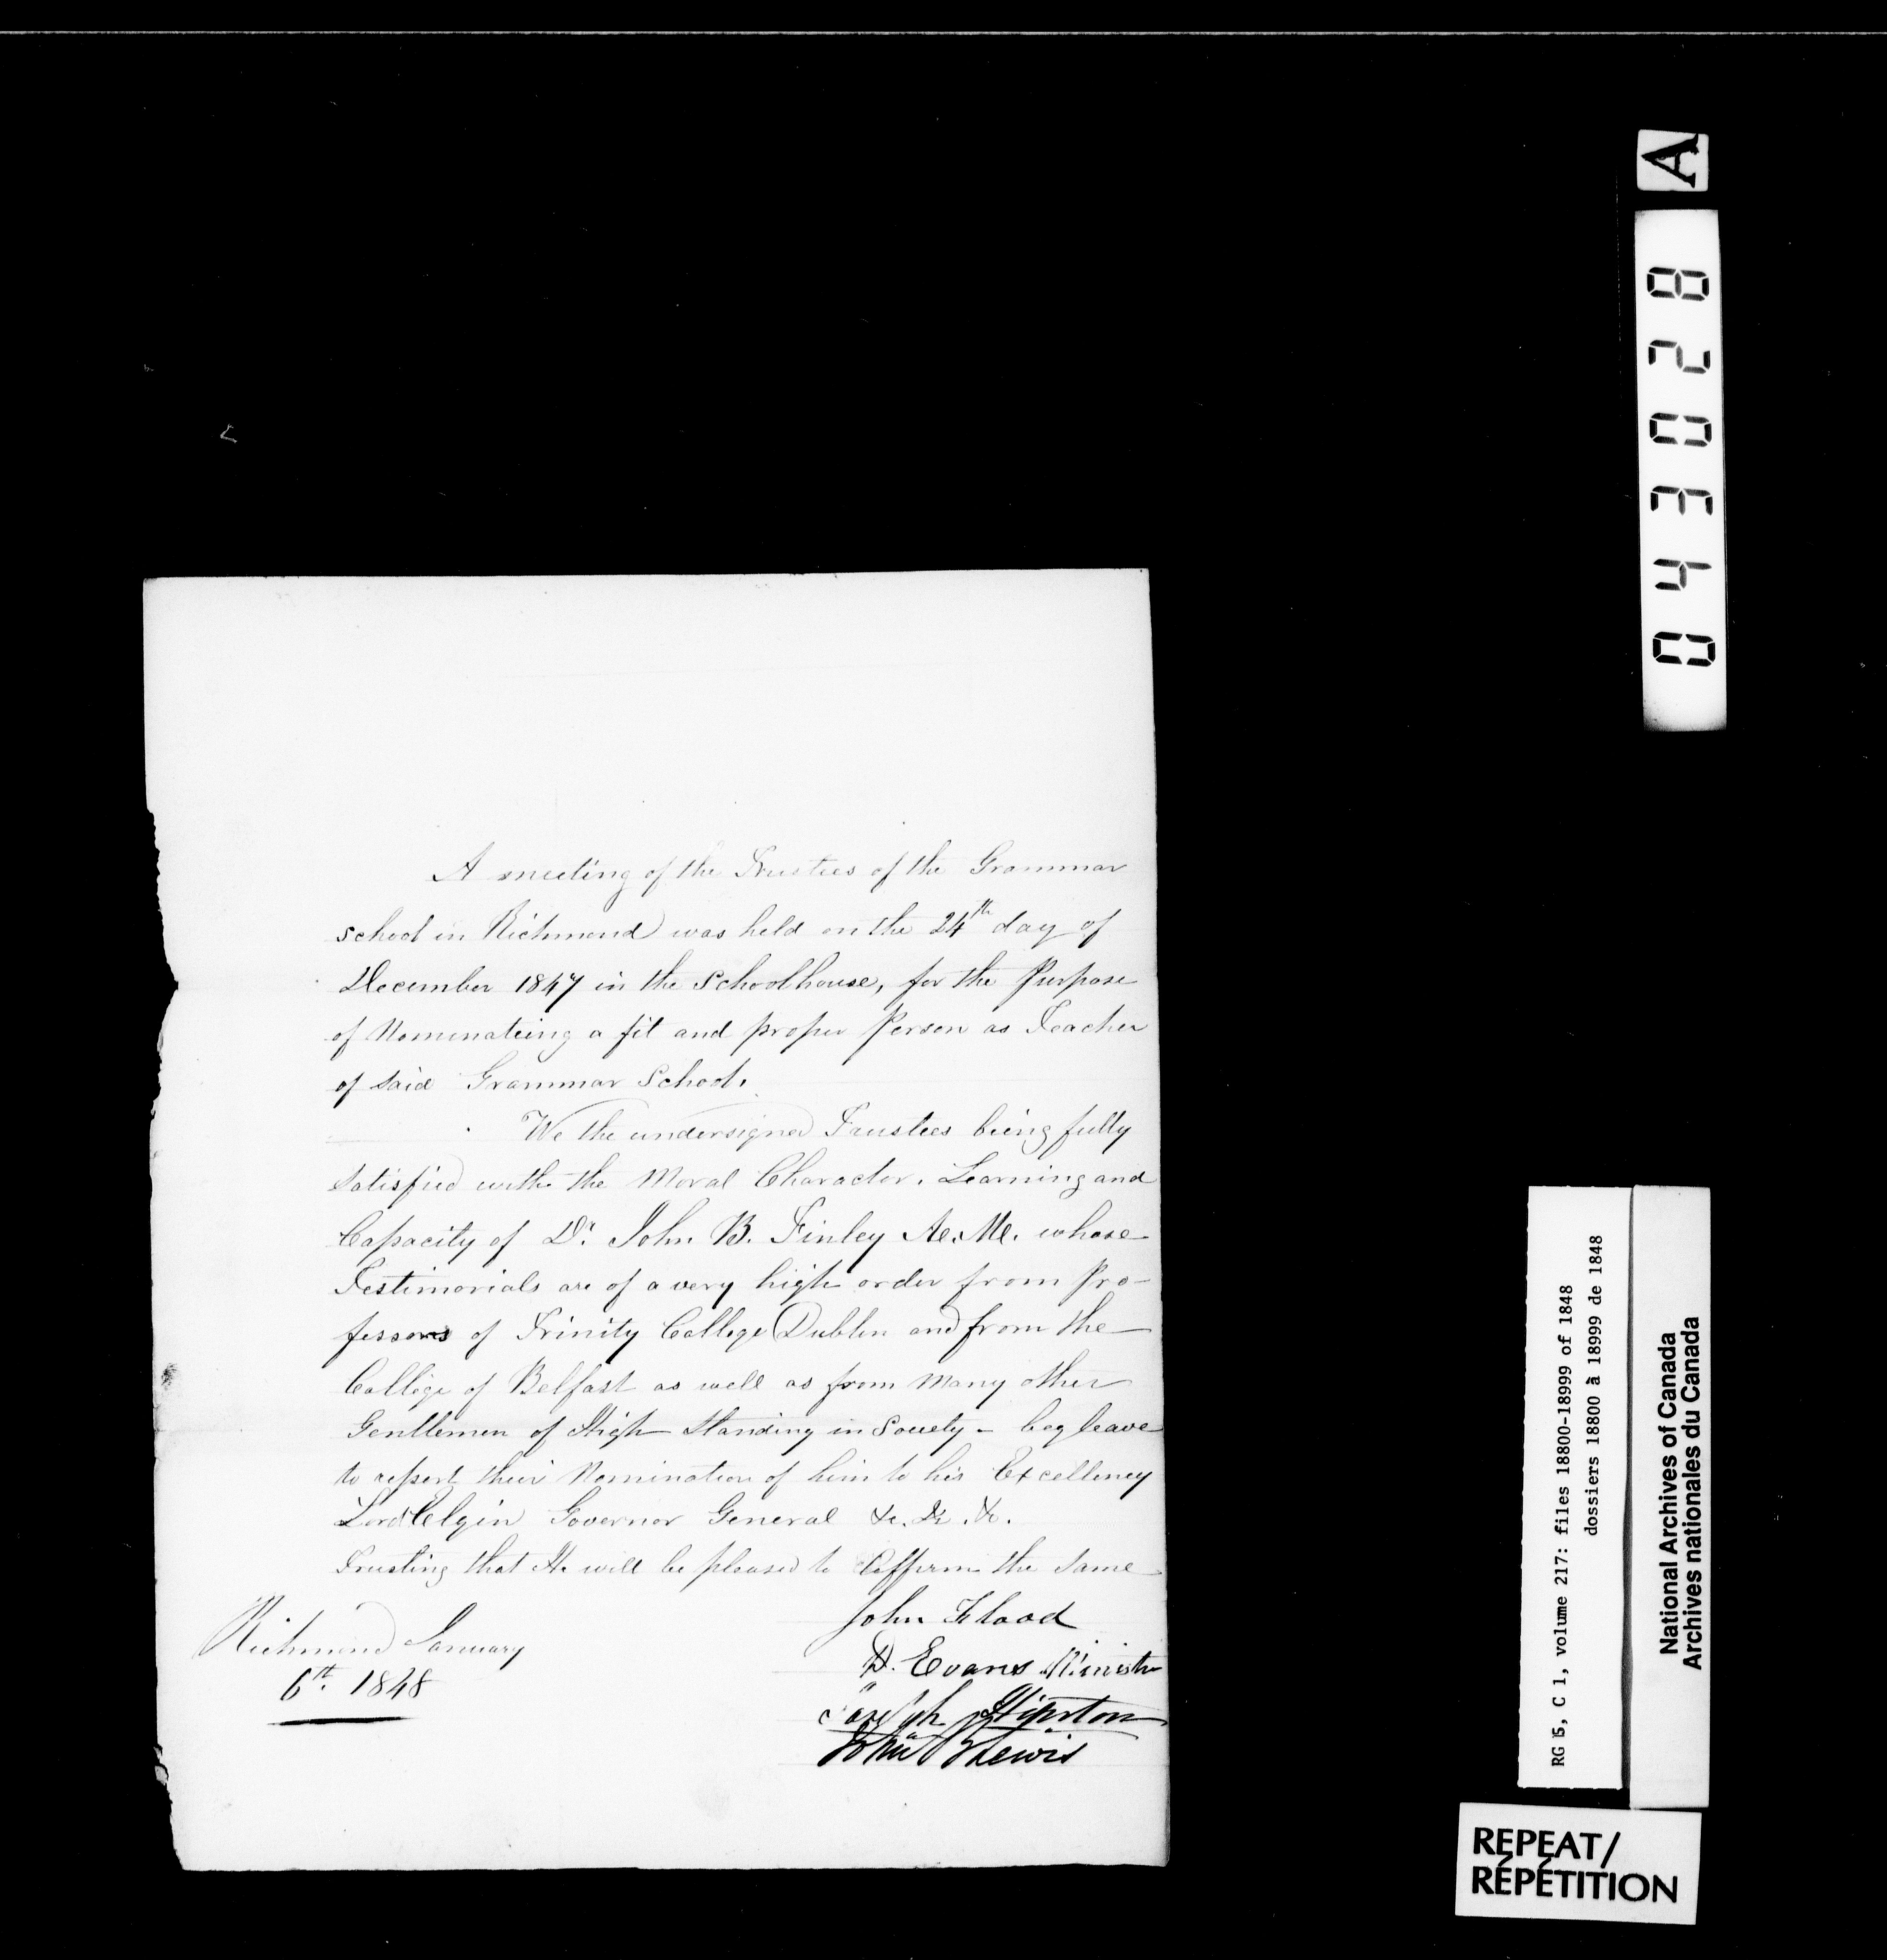 A meeting of the Trustees of the Grammar
school in Richmond was held on the 24th day of
December 1847 in the Schoolhouse, for the Purpose
of Nominateing a fit and proper Person as Teacher
of said Grammar School.
We the undersigned Trustees being fully
satisfied with the Moral Character, Learning and
Capacity of Dr. John B. Finley A.M. whose
Testimonials are of a very high order from Pro-
fessors of Trinity College Dublin and from the
College of Belfast as well as from Many other
Gentlemen of High Standing in Society - beg leave
to report their Nomination of him to his Excellency
Lord Elgin Governor General &c. &c. &c.
Trusting that He will be pleased to Affirm the same
John Flood
D. Evans Minister
Joseph
John Lewis
Richmond January
6th. 1848
A
043028
RG 5, C 1, volume 217: files 18800-18999 of 1848
dossiers 18800 à 18999 de 1848
National Archives of Canada
Archives nationales du Canada
REPEAT/
RÉPÉTITION